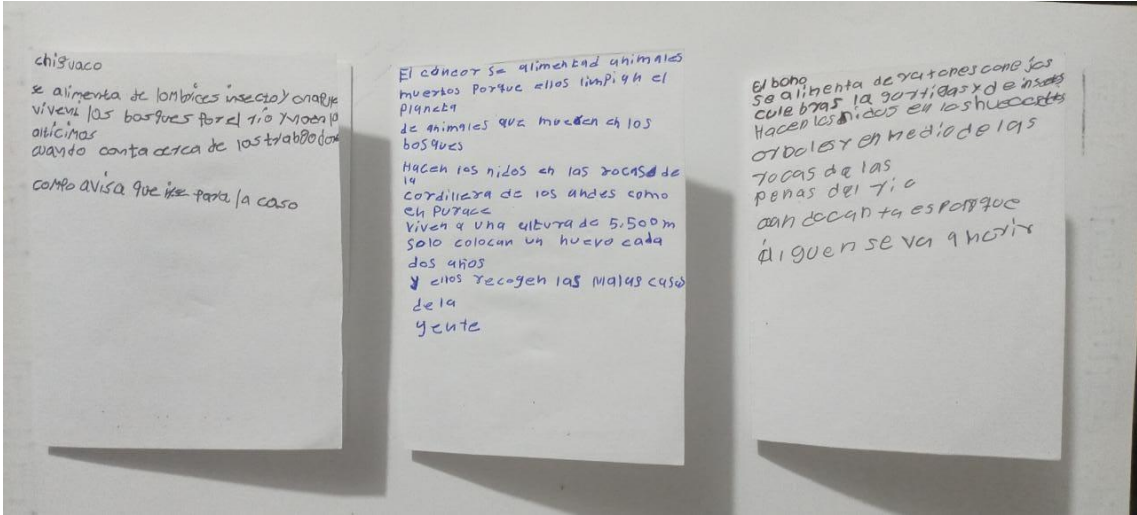 chiguaco
se alimenta de lombrices insecto y
viven los bosques por el rio y no en lo
alticimos
cuando canta cerca de los trabajador
compo avisa que para la caso
El cóncor se alimentad animales
muertos porque ellos limpian el
planeta
de animales que mueren en los
bosques
Hacen los nidos en las rocasd de
la
cordillera de los andes como
en Purace
viven a una altura de 5.500 m
solo colocan un huevo cada
dos años
y ellos recogen las malas casas
de la
gente
El boho
se alimenta de ratones conejos
culebras la gartigas y de insectos
Hacen los nidos en los
arboles y en medio de las
rocas de las
peñas del rio
cuandocanta es porque
alguen se va a morir